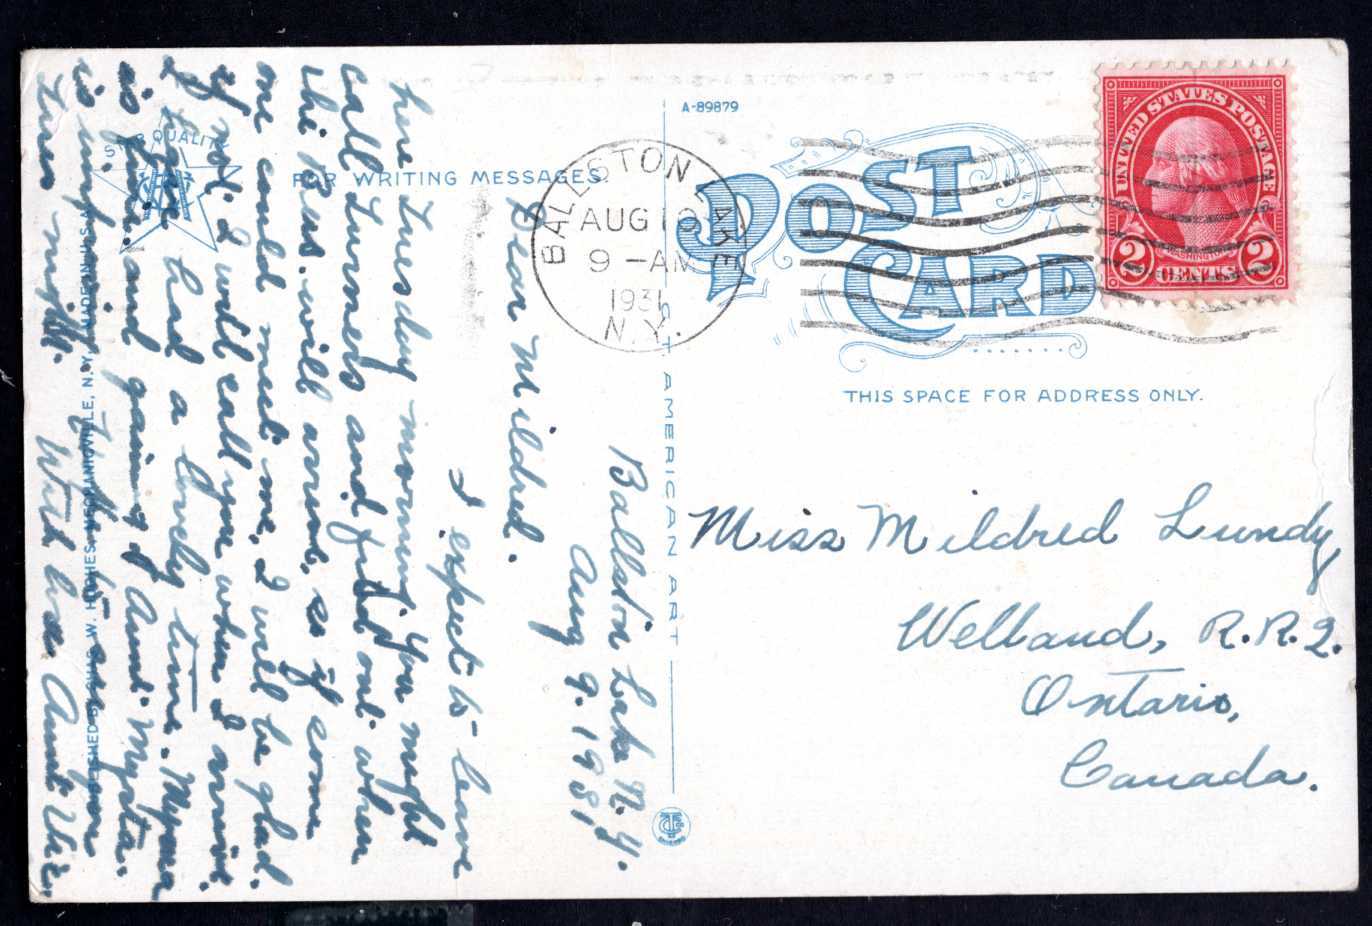 A-89879
BALLSTON LAKE
AUG 10
9 - AM
1931
N.Y.
UNITED STATES POSTAGE
WASHINGTON
2 CENTS 2
POST CARD
STAR QUALITY
FOR WRITING MESSAGES.
THIS SPACE FOR ADDRESS ONLY.
Miss Mildred Lundy
Welland, R.R.2.
Ontario,
Canada.
Ballston Lake N.Y.
Aug 9. 1931
Dear Mildred.
I expect to leave
here Tuesday morning. You might
call Turners and find out when
the Bus. will arrive, so if some
one could meet me, I will be glad.
if not I will call you when I arrive.
I have had a lovely time. Myrna
is fine. and gaining. Aunt Myrta.
is improving. Will see you
Tues night. With love Aunt
C.T. AMERICAN ART
PUBLISHED BY CHAS. W. HUGHES, MECHANICVILLE, N.Y. MADE IN U.S.A.